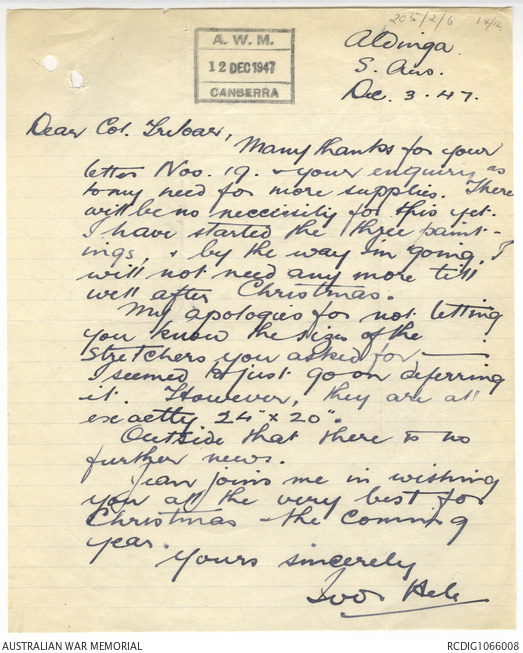 205/2/6 14/12
A.W.M.
12 DEC 1947
CANBERRA
Aldinga.
S. Aus.
Dec. 3. 47.
Dear Col. Treloar,
Many thanks for your
letter Nov. 19. & your enquiry as
to my need for more supplies. There
will be no neccisity for this yet.
I have started the three paint-
ings, & by the way I'm going, I
will not need any more till
well after Christmas.
My apologies for not letting
you know the sizes of the
stretchers you asked for —
I seemed to just go on deferring
it. However, they are all
exactly 24" x 20".
Outside that there is no
further news.
Jean joins me in wishing
you all the very best for
Christmas & the coming
year.
Yours sincerely
Ivor Hele
AUSTRALIAN WAR MEMORIAL
RCDIG1066008